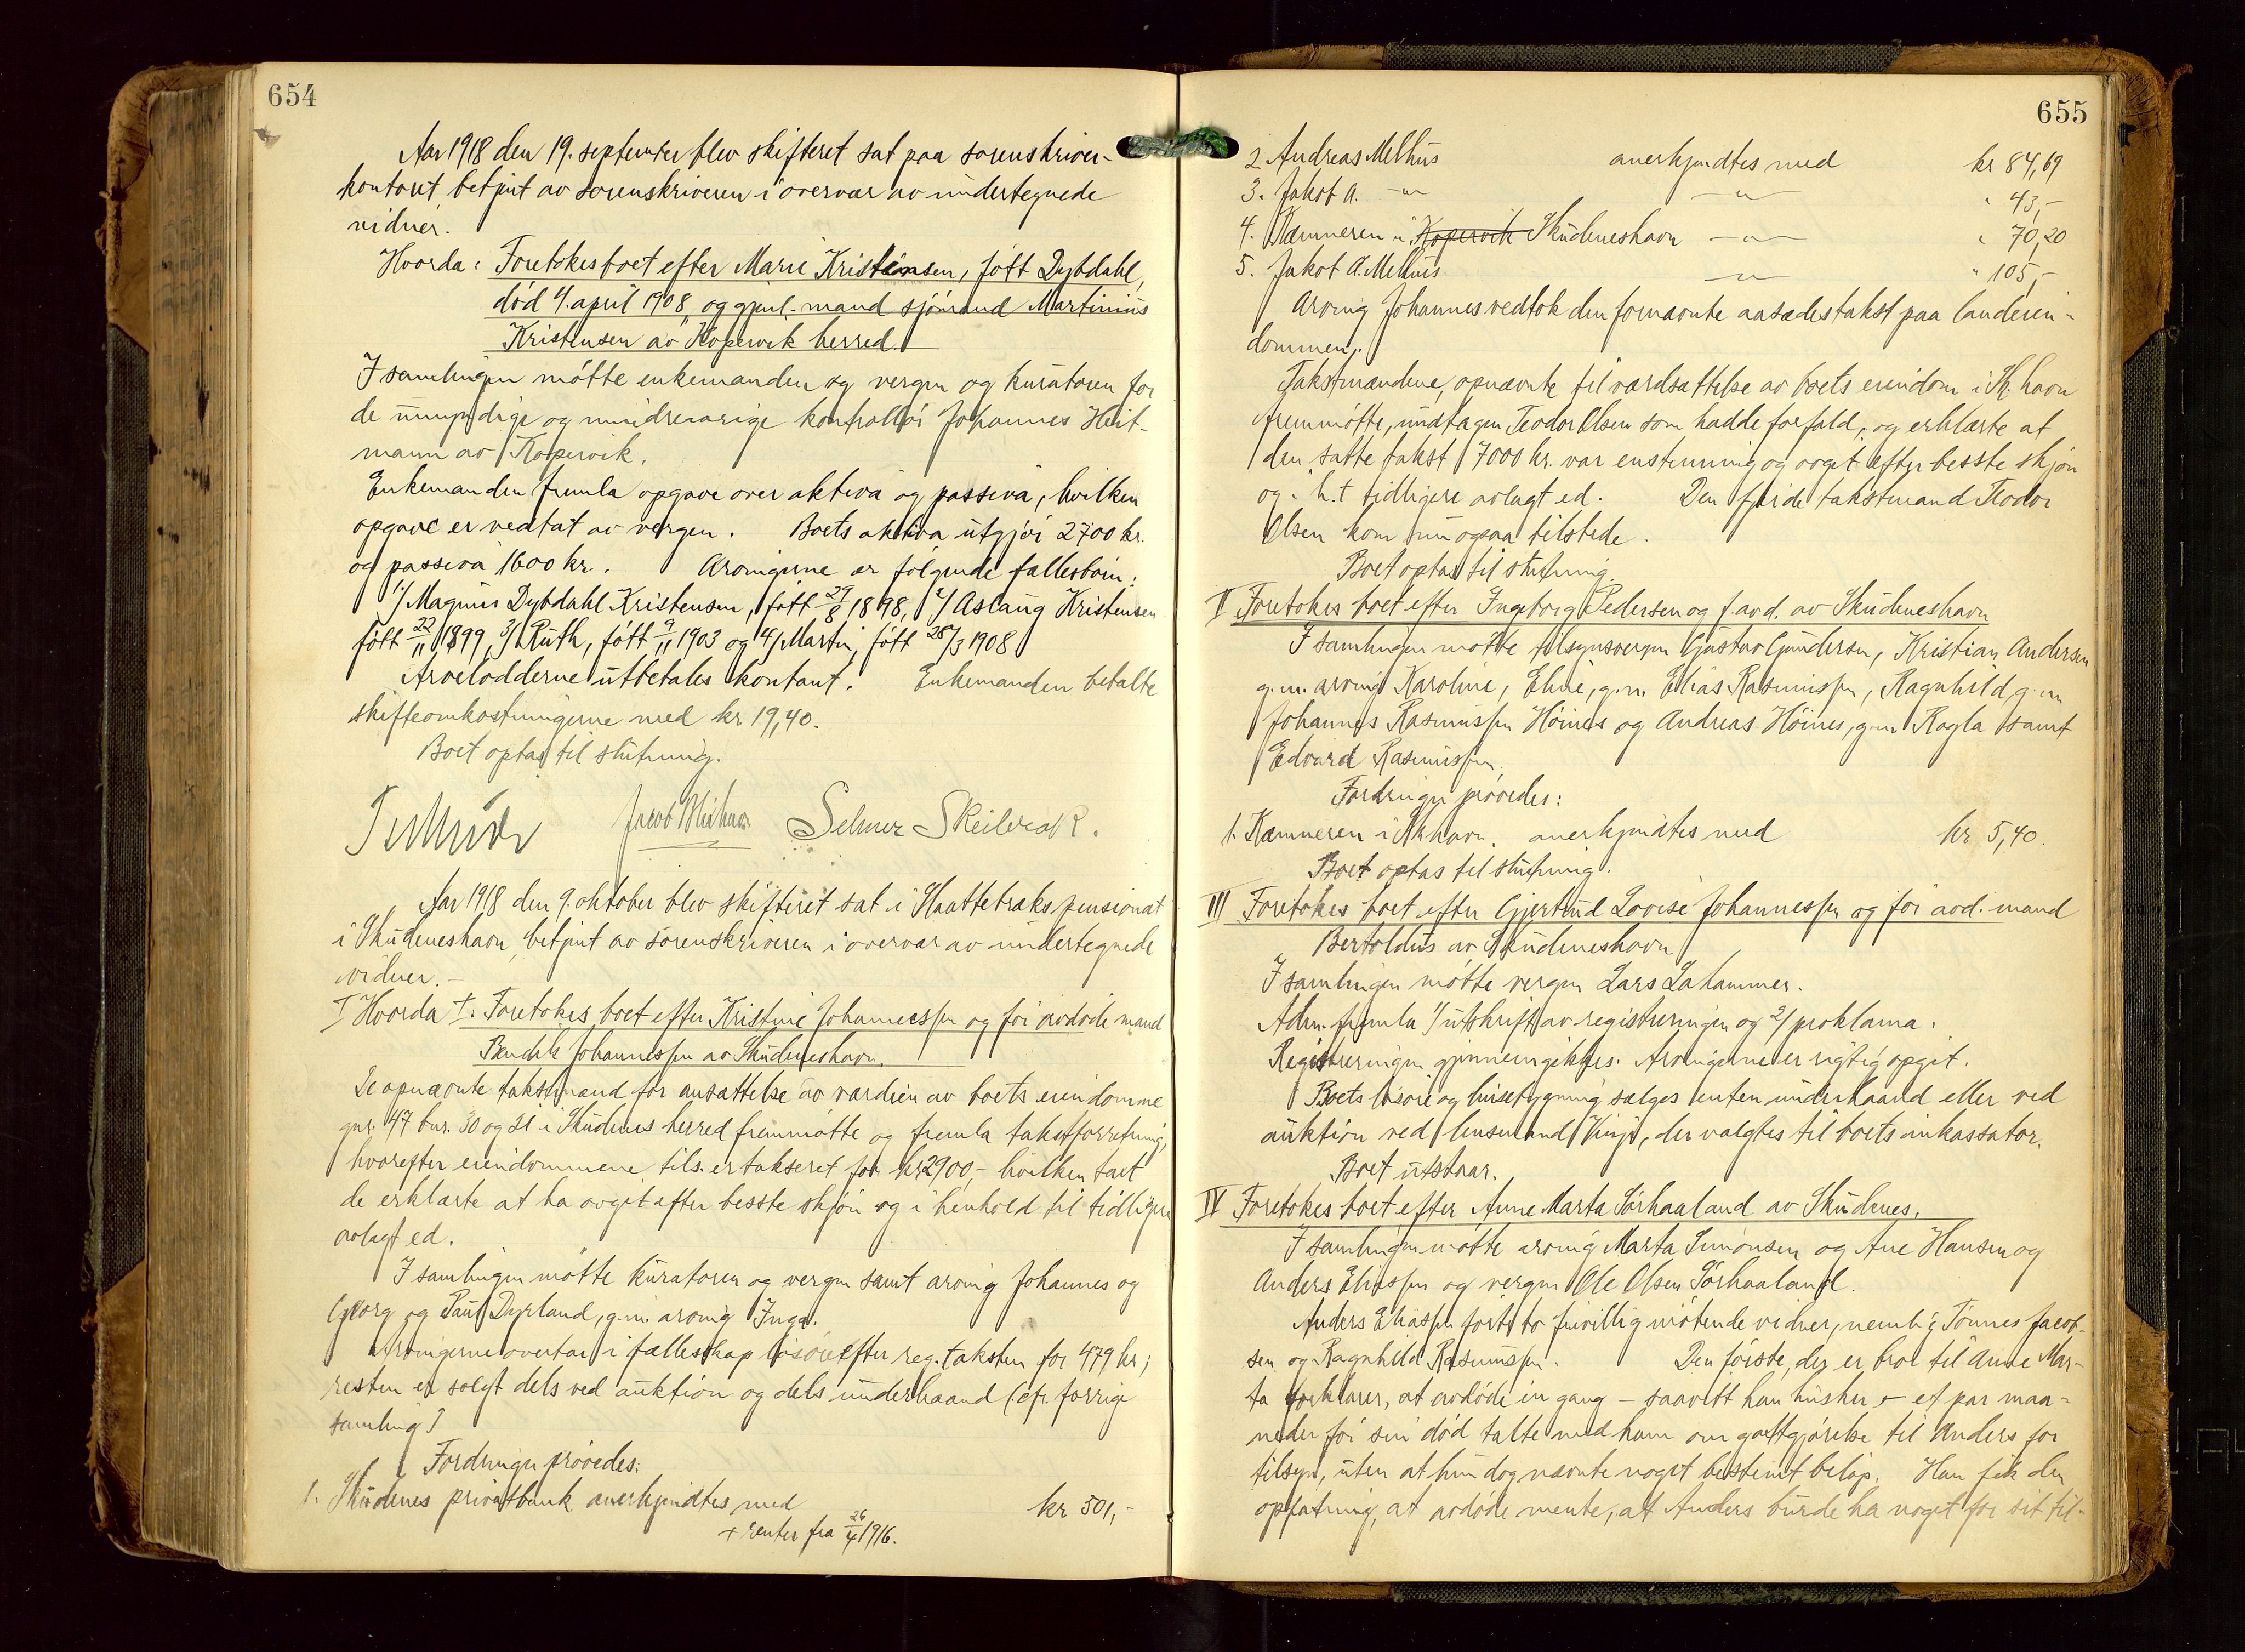 654
Aar 1918 den 19. september blev skifteret sat paa sorenskriver-
kontoret betjent av sorenskriveren i overvær av undertegnede
vidner.
Hvorda: Foretokes boet efter Marie Kristensen, født Dybdahl,
død 4. april 1908, og gjenl. mand sjømand Martinius
Kristensen av Kopervik herred.
I samlingen møtte enkemanden og vergen og kuratoren for
de umyndige og mindreaarige kontrollør Johannes Heit-
mann av Kopervik.
Enkemanden fremla opgave over aktiva og passiva, hvilken
opgave er vedtat av vergen. Boets aktiva utgjør 2700 kr.
og passiva 1600 kr. Arvingerne er følgende fællesbørn:
1/ Magnus Dybdahl Kristensen, født 29/8 1898, 2/ Aslaug Kristensen
født 22/11 1899, 3/ Ruth, født 9/11 1903 og 4/ Martin, født 28/3 1908
Arvelodderne utbetales kontant. Enkemanden betalte
skifteomkostningerne med kr 19,40.
Boet optas til slutning.
Jacob Selmer Skeilvak.
Aar 1918 den 9. oktober blev skifteret sat i pensionat
i Skudeneshavn, betjent av sorenskriveren i overvær av undertegnede
vidner.-
I Hvorda I. Foretokes boet efter Kristine Johannessen og før avdøde mand
Bendik Johannessen av Skudeneshavn.
De opnævnte takstmænd for ansættelse av værdien av boets eiendomme
gnr. 47 bnr. 30 og 31 i Skudenes herred fremmøtte og fremla takstforretning,
hvorefter eiendommene tils. er takseret for kr 2900,- hvilken takst
de erklærte at ha avgit efter besste skjøn og i henhold til tidligere
avlagt ed.
I samlingen møtte kuratoren og vergen samt arving Johannes og
Georg og Paul Dyrland, g.m. arving Inga.
Arvingerne overtar i fællesskap løsøre efter reg. taksten for 479 kr;
resten er solgt dels ved auktion og dels underhaand (cfr. forrige
samling)
Fordringer prøvedes:
1. Skudenes privatbank anerkjendtes med kr 501,-
+ renter fra 26/4 1916.
655
2. Andreas Melhus anerkjendtes med kr 84,69
3. Jakob A. -"- -"- " 43,-
4. Kæmneren i Kopervik Skudeneshavn -"- " 70,20
5. Jakob A. Melhus -"- " 105,-
Arving Johannes vedtok den fornævnte aasædestakst paa landeien-
dommen.
Takstmændene, opnævnte til værdsættelse av boets eiendom i Sk.havn
fremmøtte, undtagen Teodor Olsen som hadde forfald, og erklærte at
den satte takst 7000 kr. var enstemmig og avgit efter besste skjøn
og i h.t tidligere avlagt ed. Den fjerde takstmand Teodor
Olsen kom nu ogsaa tilstede.
Boet optas til slutning.
II Foretokes boet efter Ingeborg Pedersen og f. avd. av Skudeneshavn
I samlingen møtte tilsynsvergen Gustav Gundersen, Kristian Andersen
g.m. arving Karoline, Eline, g.m. Elias Rasmussen, Ragnhild g.m
Johannes Rasmussen Høines og Andreas Høines, g.m Ragla samt
Edvard Rasmussen.
Fordringer prøvedes:
1. Kæmneren i Sk havn. anerkjendtes med kr 5,40.
Boet optas til slutning.
III Foretokes boet efter Gjertrud Lovise Johannessen og før avd. mand
Bertoldus av Skudeneshavn
I samlingen møtte vergen Lars Lahammer.
Adm. fremla 1/ utskrift av registreringen og 2/ proklama.
Registreringen gjennemgikkes. Arvingerne er rigtig opgit.
Boets løsøre og husebygning sælges enten underhaand eller ved
auktion ved lensmand Vinje, der valgtes til boets inkassator.
Boet utstaar.
IV Foretokes boet efter Anne Marta Sørhaaland av Skudenes.
I samlingen møtte arving Marta Simonsen og Ane Hansen og
Anders Eliassen og vergen Ole Olsen Sørhaaland.
Anders Eliassen førte to frivillig møtende vidner, nemlig Tønnes Jacob-
sen og Ragnhild Rasmussen. Den første, der er bror til Anne Mar-
ta forklarer, at avdøde en gang - saavidt han husker - et par maa-
neder før sin død talte med ham om godtgjørelse til Anders for
tilsyn, uten at hun dog nævnte noget bestemt beløp. Han fik den
opfatning, at avdøde mente, at Anders burde ha noget for sit til-